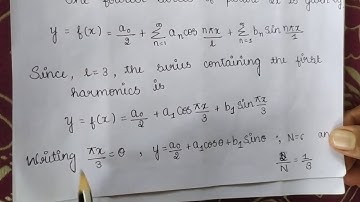 The fourier series of period 2l is given by
y = f(x) = a₀/2 + ∑_{n=1}^{∞} aₙ cos nπx/l + ∑_{n=1}^{∞} bₙ sin nπx/l
Since, l = 3, the series containing the first
harmonics is
y = f(x) = a₀/2 + a₁ cos πx/3 + b₁ sin πx/3
Writing πx/3 = θ, y = a₀/2 + a₁ cosθ + b₁ sinθ ∵ N=6 an
2/N = 1/3